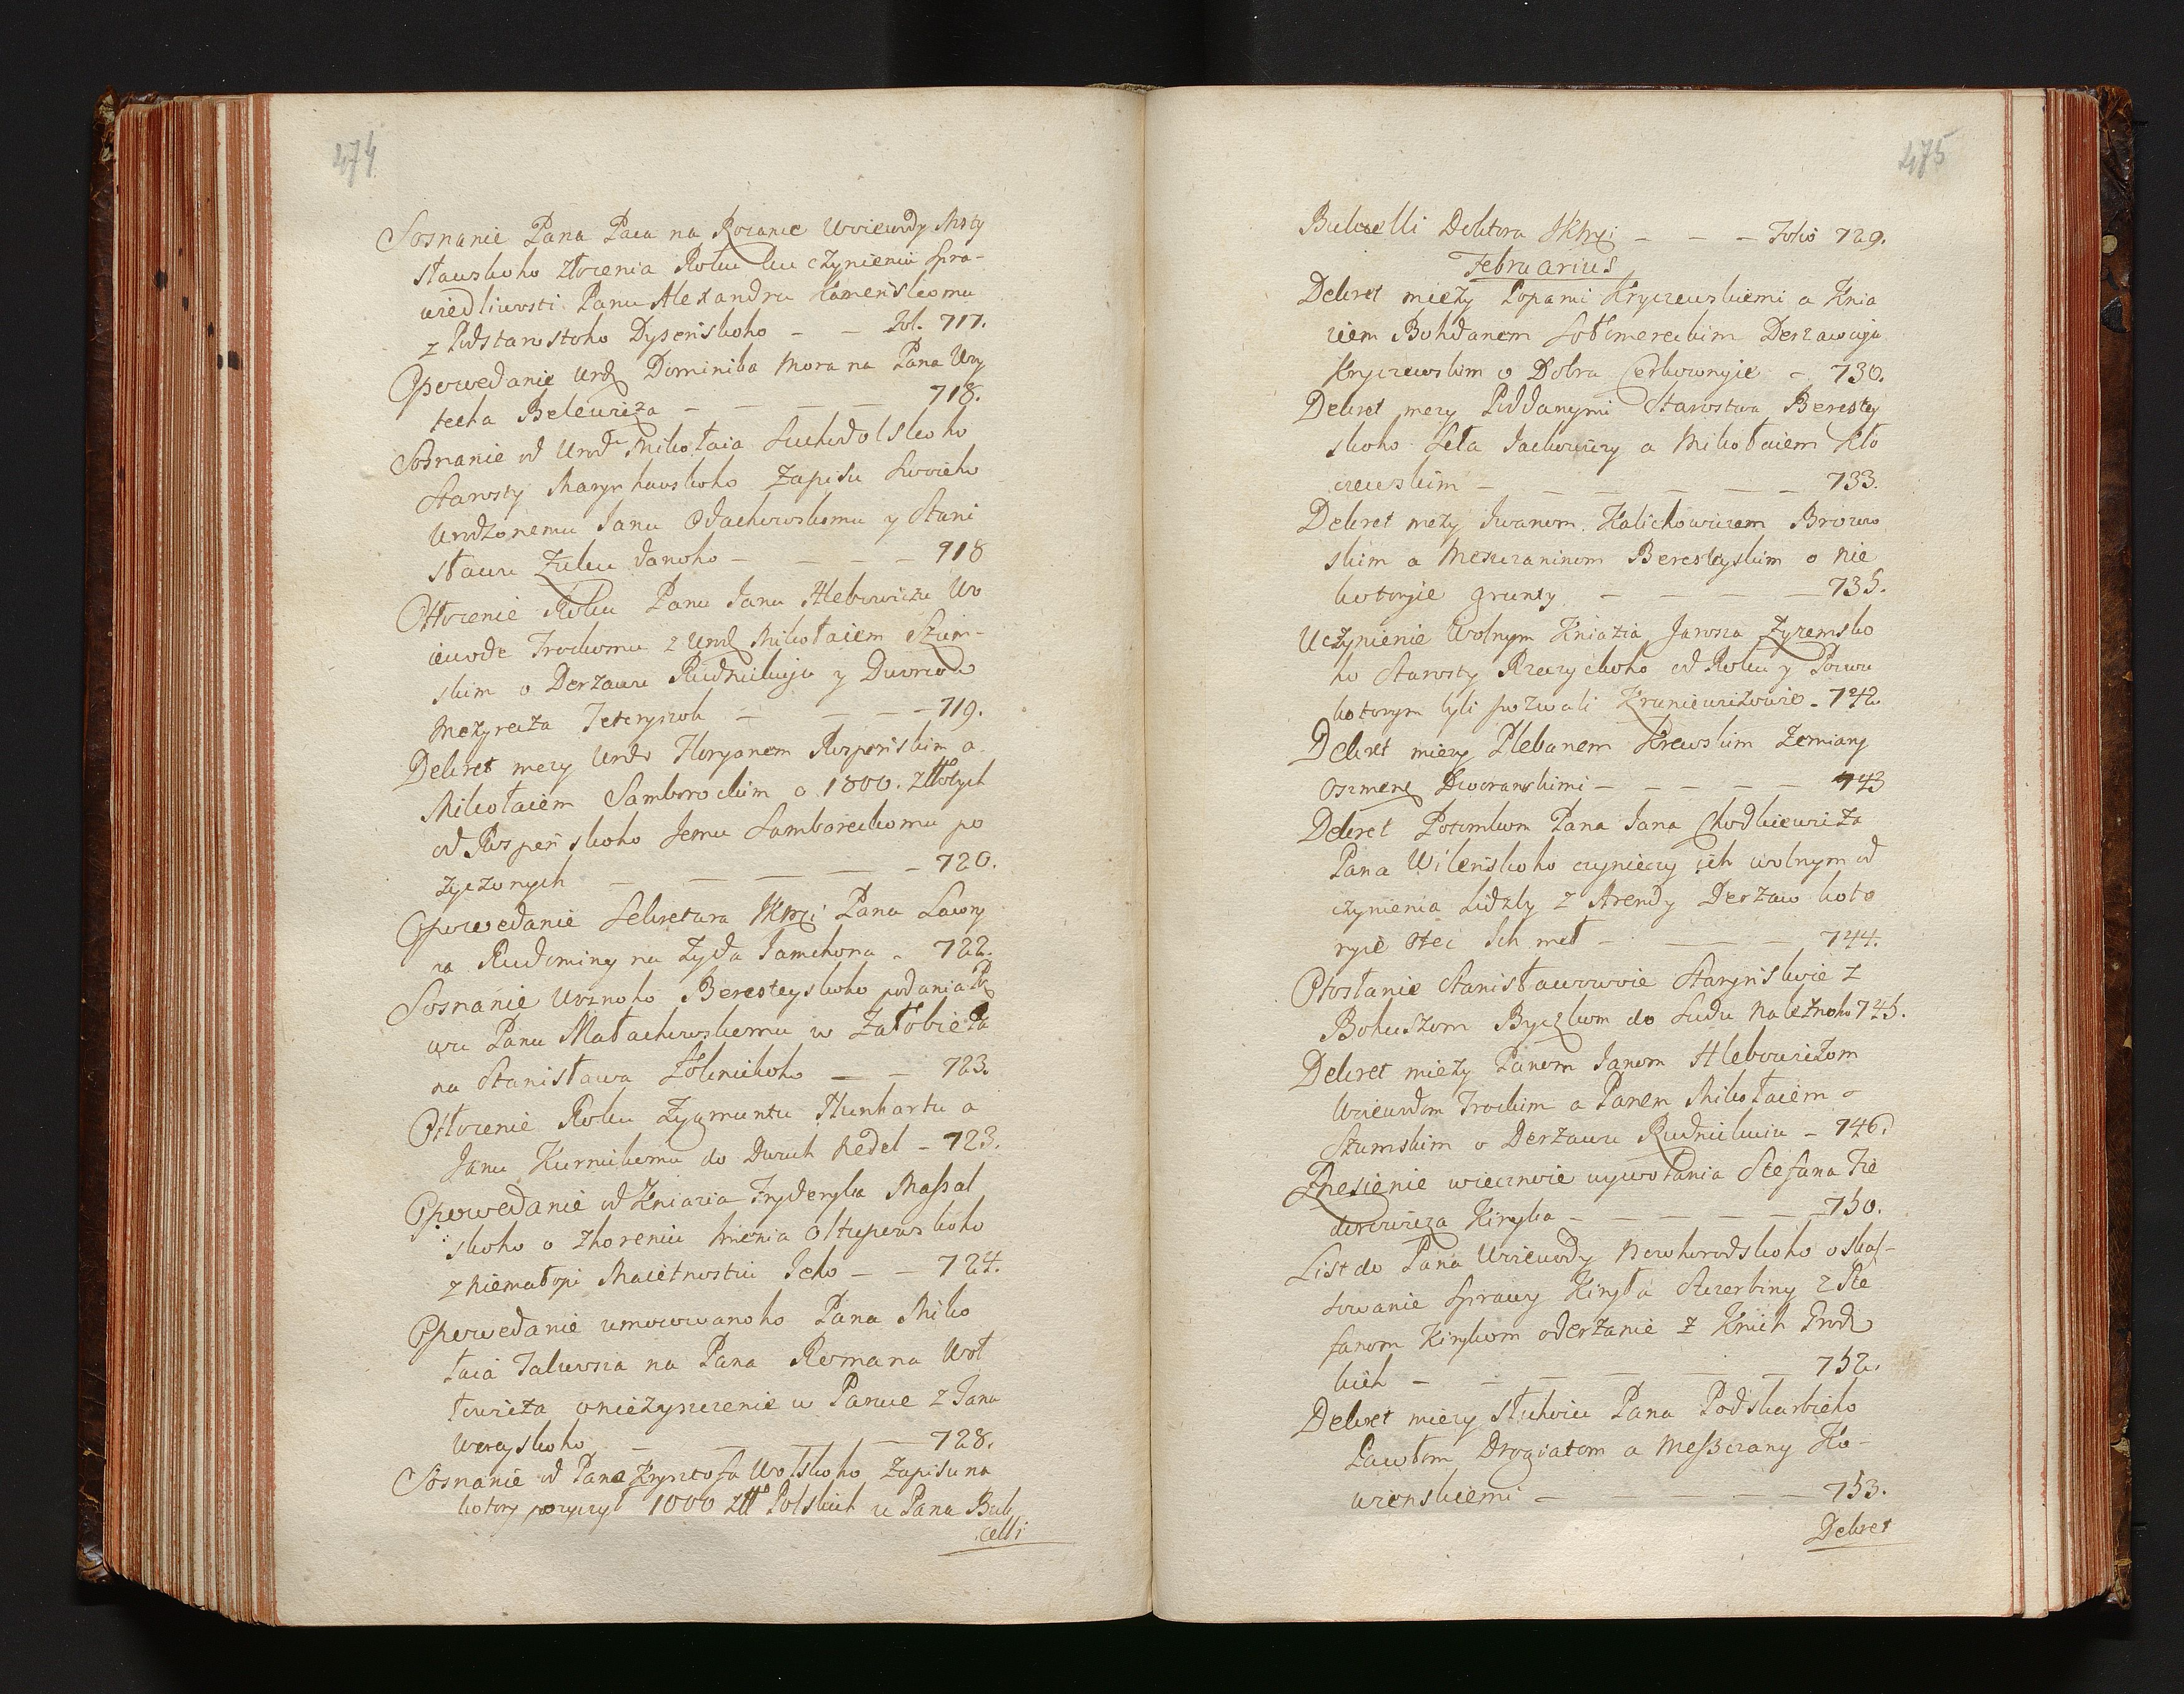 474
Soznanie Pana Paca na Rozance Woiewody Msty
sławskoho złozenia Roku ku czynieniu spra-
wiedliwosti Panu Alexandru Kamenskomu
z Podstarostoho Dysenskoho - - Fol. 717.
Opowedanie Urodz Dominika Mora na Pana Woy
techa Belewicza - - - - 718.
Soznanie od Urodz Mikołaia Suchodolskoho
Starosty Marynhauskoho Zapisu Swoieho
Urodzonemu Janu Odachowskomu y Stani
sławu Zuku danoho - - - - 918
Otłozenie Roku Panu Janu Hlebowiczu Wo
iewode Trockomu z Urodz Mikołaiem Szum-
skim o Derzawu Rudnickuju y Dworcow
Mezyrecza Jeteryszok - - - - 719.
Dekret mezy Urodz Floryanem Rospenskim a
Mikołaiem Samborockim o 1800. Złłotych
od Rospenskoho Jemu Samboreckomu po
zyczonych - - - - - 720.
Opowedanie Sekretara JKMci Pana Lawry
na Rudominy na Zyda Jamchona - 722.
Soznanie Woznoho Beresteyskoho podania Po
wu Panu Małachowskomu w Załobie Pa
na Stanisława Zołnickoho - - 723.
Otłozenie Roku Zygmuntu Hunhartu a
Janu Kurnickomu do Dwuch Nedel - 723.
Opowedanie od Kniazia Fryderyka Massal
skoho o zhoreniu Imenia Oltupewskoho
z niematoju Maietnostiu Jeho - - 724.
Opowedanie umocowanoho Pana Miko
łaia Talwosza na Pana Romana Woł
łowicza o niezyszczenie w Parwe z Jana
Woreyskoho - - - - - 728.
Soznanie od Pana Krysztofa Wolskoho Zapisu na
kotory pozyczył 1000 Złł Polskich u Pana Buk
celli
475
Bukcelli Doktora JKMci - - - Folio 729.
Februarius
Dekret miezy Popami Kryczewskiemi a Knia
ziem Bohdanem Sołomereckim Derzawcju
Kryczewskim o Dobra Cerkownyie - 730.
Dekret mezy Poddanymi Starostwa Berestey
skoho Seła Jackowiczy a Mikołaiem Kło
czewskim - - - - - - 733.
Dekret mezy Iwanom Kalichowiczem Brozow
skim a Meszczaninom Beresteyskim o nie
kotoryie grunty - - - - 735.
Uczynienie Wolnym Kniazia Jarosza Zyzemsko
ho Starosty Rzeczyckoho od Roku y Pozwu
kotorym byli pozwali Kruniewiczowie - 742.
Dekret miezy Plebanem Krewskim Zemiany
Oszmeny Dworanskimi - - - - - 743
Dekret Potomkom Pana Jana Chodkiewicza
Pana Wilenskoho czynieczy ich wolnym od
czynienia Liczby z Arendy Derzaw koto
ryie Otec Ich meł - - - - 744.
Posłanie Stanisławowoie Starynskoie z
Bohuszom Byczkom do Sudu Nalezneho 745.
Dekret miezy Panom Janom Hlebowiczom
Woiewodom Trockim a Panem Mikołaiem
Szumskim o Derzawu Rudnickuiu - 746.
Zniesienie wiecznoie wywołania Stefana Fie
dorowicza Kiryka - - - - - 750.
List do Pana Woiewody Nowhorodskoho o skas-
sowanie Sprawy Kiryła Szczerbiny z Ste
fanom Kirykom oderzanie z Knich Grodz
kich - - - - - - 752.
Dekret miezy słuhoiu Pana Podskarbieho
Pawłom Drogiatom a Meszczany Ko-
wienskiemi - - - - - 753.
Dekret